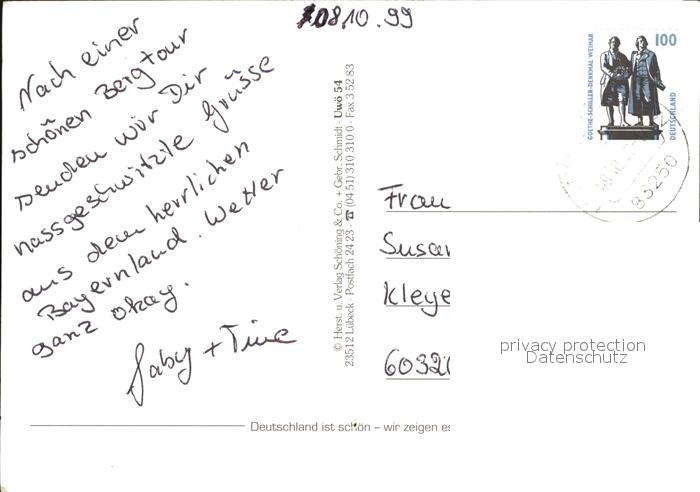 08.10.99
Nach einer
schönen Bergtour
senden wir Dir
nassgeschwitzte Grüsse
aus dem herrlichen
Bayernland. Wetter
ganz okay.
Gaby + Tine
© Herst. u. Verlag Schöning & Co. + Gebr. Schmidt · Uwö 54
23512 Lübeck · Postfach 24 23 · ☎ (04 51) 310 310 · Fax 3 52 83
GOETHE-SCHILLER-DENKMAL WEIMAR
100
DEUTSCHLAND
83250
Frau
Susan
Kleye
6032
privacy protection
Datenschutz
Deutschland ist schön – wir zeigen es